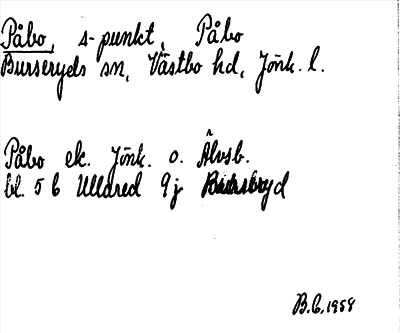 Påbo, s-punkt, Påbo
Burseryds sn, Västbo hd, Jönk. l.
Påbo ek. Jönk. o. Älvsb.
bl. 5 6 Ullared 9j
B.G. 1958